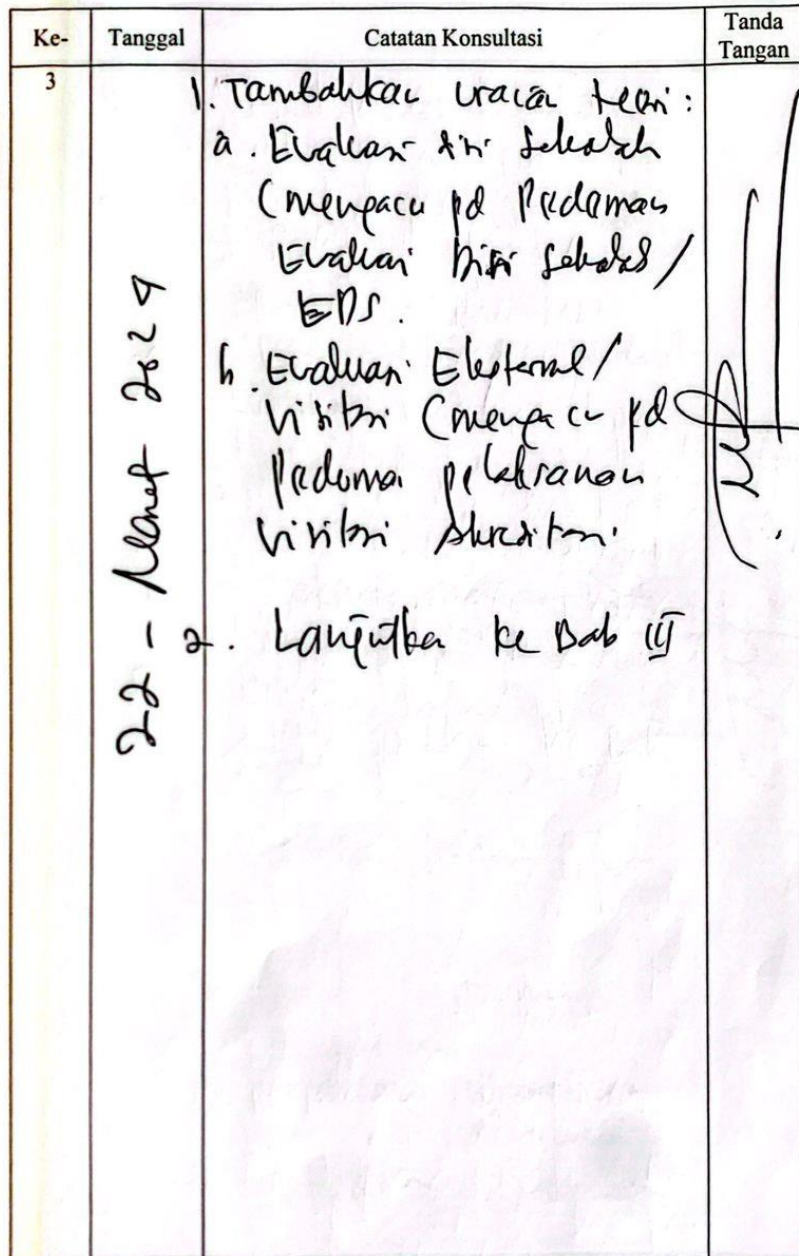 Ke-
Tanggal
Catatan Konsultasi
Tanda
Tangan
3
22 - Maret 2024
1. Tambahkan uraian teori :
a. Evaluasi diri sekolah
(mengacu pd Pedoman
Evaluasi Diri Sekolah /
EDS.
b. Evaluasi Eksternal /
Visitasi (mengacu pd
Pedoman pelaksanaan
Visitasi Akreditasi.
2. Lanjutkan ke Bab III